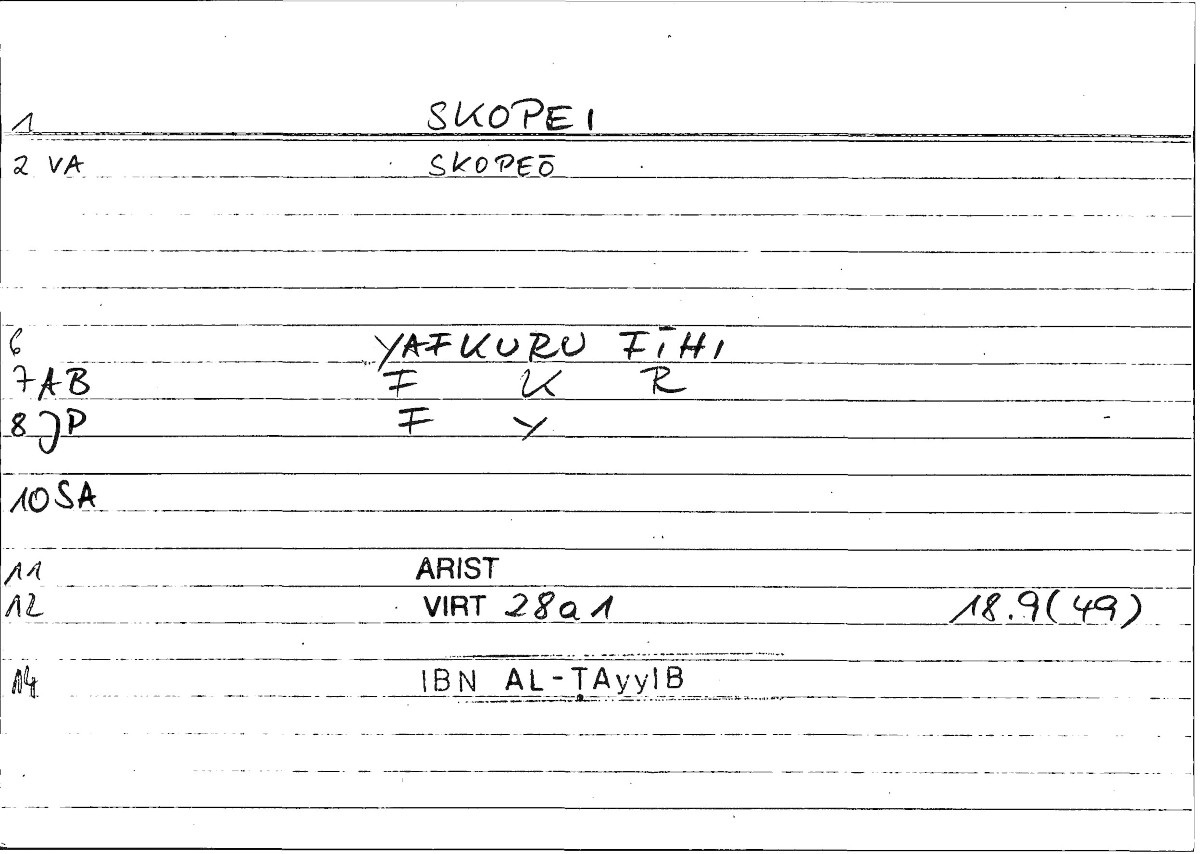 1 SKOPEI
2 VA SKOPEŌ
6 YAFKURU FĪHI
7 AB F K R
8 JP F Y
10 SA
11 ARIST
12 VIRT 28a1 18.9(49)
14 IBN AL-ṬAyyIB